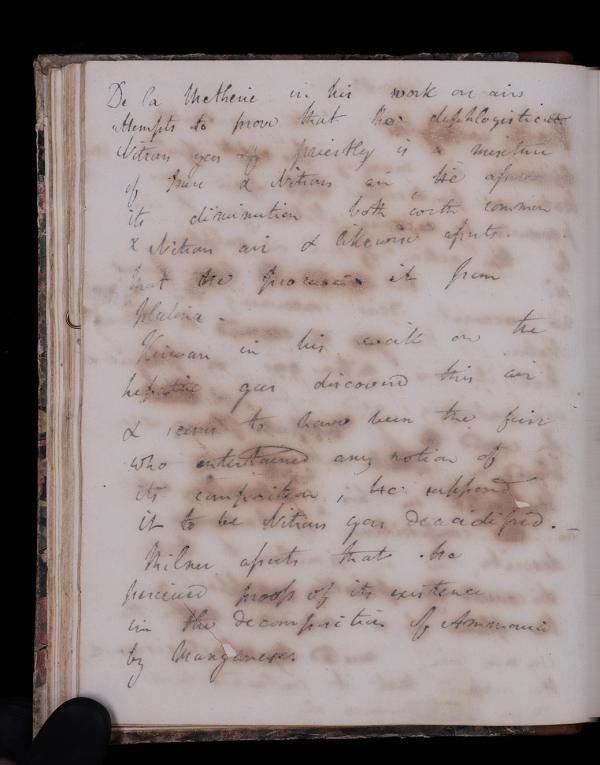 De la Metherie in his work on airs
attempts to prove that the dephlogisticated
Nitrous gas of priestley is a mixture
of pure & Nitrous air, He asserts
its diminution both with common
& Nitrous air & likewise asserts
that he procured it from
platina.
Kirwan in his work on the
hepatic gas discovered this air
& seems to have been the first
who entertained any notion of
its composition, he supposed
it to be Nitrous gas deacidified. _
Milner asserts that he
perceived proofs of its existence
in the decomposition of Ammonia
by Manganese.